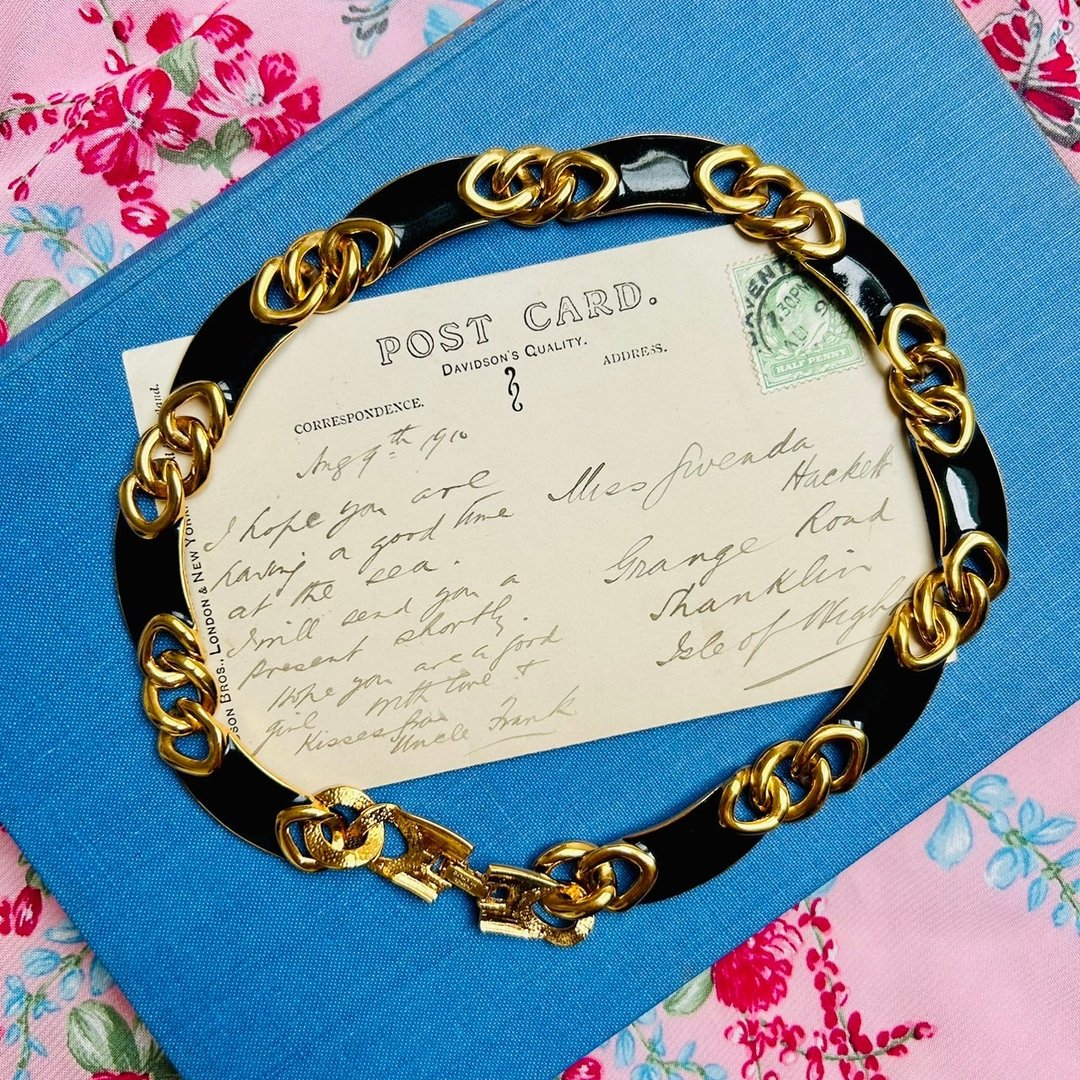 POST CARD.
DAVIDSON'S QUALITY.
ADDRESS.
CORRESPONDENCE.
Aug 9th 1910
I hope you are
having a good time
at the sea.
I will send you a
present shortly.
Hope you are a good
girl with love &
Kisses from
Uncle Frank
Miss Gwenda
Hackett
Grange Road
Shanklin
Isle of Wight
HALF PENNY
7.30PM
SON BROS., LONDON & NEW YORK